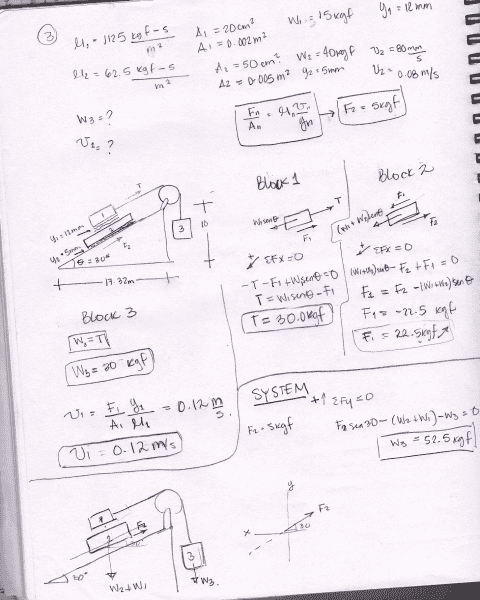 3
μ1 = 1125 kgf-s/m² A1 = 20cm² W1 = 15kgf y1 = 12mm
A1 = 0.002m²
μ2 = 62.5 kgf-s/m² A2 = 50cm² W2 = 40kgf v2 = 80mm/s
A2 = 0.005m² y2 = 5mm v2 = 0.08 m/s
W3 = ?
v1 = ?
Fn/An = μn vn/yn → F2 = 5kgf
T
1
2
3
y1=12mm
y2=5mm
F2
θ = 30°
10
17.32m
Block 1
W1senθ
T
F1
+ ΣFx=0
-T-F1+W1senθ=0
T = W1senθ-F1
T = 30.0kgf
Block 2
F1
(W1+W2)senθ
F2
+ ΣFx=0
(W1+W2)senθ-F2+F1=0
F1 = F2-(W1+W2)senθ
F1 = -22.5 kgf
F1 = 22.5kgf
Block 3
W3=T
W3=30 kgf
v1 = F1/A1 y1/μ1 = 0.12 m/s.
v1 = 0.12 m/s
SYSTEM + ↑ ΣFy=0
F2=5kgf F2sen30-(W2+W1)-W3=0
W3 = 52.5kgf
1
2
F2
3
30°
W2+W1
W3.
y
x
F2
30